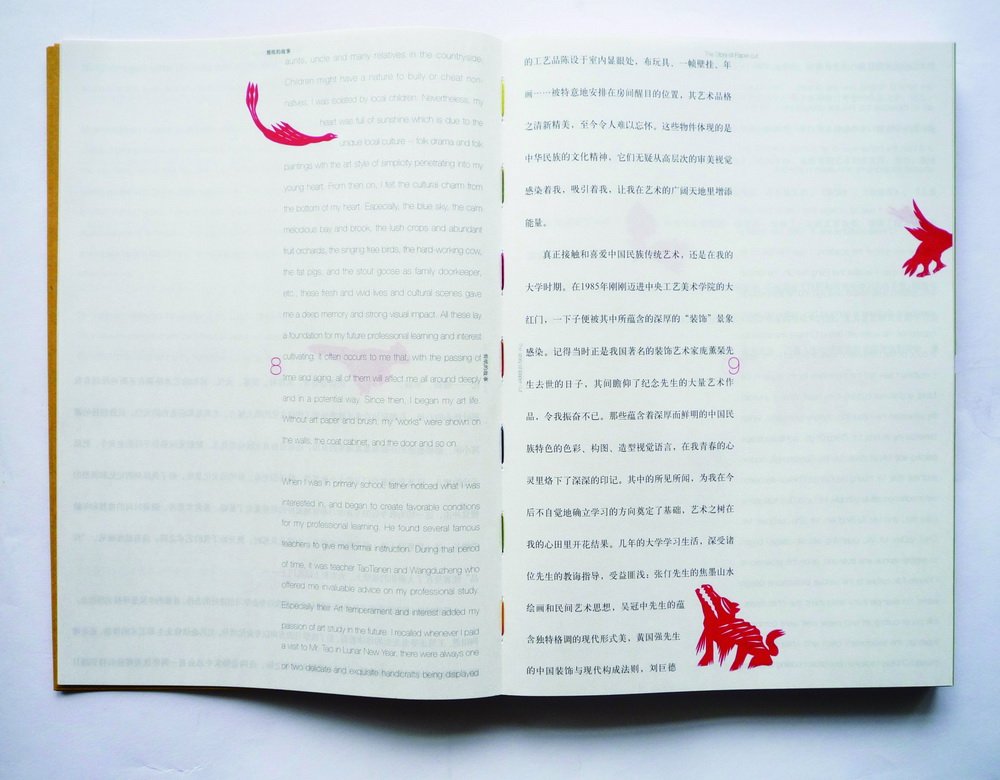 剪纸的故事
aunts, uncle and many relatives in the countryside.
Children might have a nature to bully or cheat non-
natives; I was isolated by local children. Nevertheless, my
heart was full of sunshine which is due to the
unique local culture -- folk drama and folk
paintings with the art style of simplicity penetrating into my
young heart. From then on, I felt the cultural charm from
the bottom of my heart. Especially, the blue sky, the calm
melodious bay and brook, the lush crops and abundant
fruit orchards, the singing free birds, the hard-working cow,
the fat pigs, and the stout goose as family doorkeeper,
etc., these fresh and vivid lives and cultural scenes gave
me a deep memory and strong visual impact. All these lay
a foundation for my future professional learning and interest
cultivating. It often occurs to me that, with the passing of
time and aging, all of them will affect me all around deeply
and in a potential way. Since then, I began my art life.
Without art paper and brush, my "works" were shown on
the walls, the coat cabinet, and the door and so on.
When I was in primary school, father noticed what I was
interested in, and began to create favorable conditions
for my professional learning. He found several famous
teachers to give me formal instruction. During that period
of time, it was teacher TaoTianen and Wangduzheng who
offered me invaluable advice on my professional study.
Especially their Art temperament and interest added my
passion of art study in the future. I recalled whenever I paid
a visit to Mr. Tao in Lunar New Year, there were always one
or two delicate and exquisite handicrafts being displayed
8
剪纸的故事
The Story of Paper-cut
的工艺品陈设于室内显眼处，布玩具、一帧壁挂、年
画……被特意地安排在房间醒目的位置，其艺术品格
之清新精美，至今令人难以忘怀。这些物件体现的是
中华民族的文化精神，它们无疑从高层次的审美视觉
感染着我，吸引着我，让我在艺术的广阔天地里增添
能量。
真正接触和喜爱中国民族传统艺术，还是在我的
大学时期。在1985年刚刚迈进中央工艺美术学院的大
红门，一下子便被其中所蕴含的深厚的“装饰”景象
感染。记得当时正是我国著名的装饰艺术家庞薰琹先
生去世的日子，其间瞻仰了纪念先生的大量艺术作
品，令我振奋不已。那些蕴含着深厚而鲜明的中国民
族特色的色彩、构图、造型视觉语言，在我青春的心
灵里烙下了深深的印记。其中的所见所闻，为我在今
后不自觉地确立学习的方向奠定了基础，艺术之树在
我的心田里开花结果。几年的大学学习生活，深受诸
位先生的教诲指导，受益匪浅：张仃先生的焦墨山水
绘画和民间艺术思想，吴冠中先生的蕴
含独特格调的现代形式美，黄国强先生
的中国装饰与现代构成法则，刘巨德
The Story of Paper-cut
9